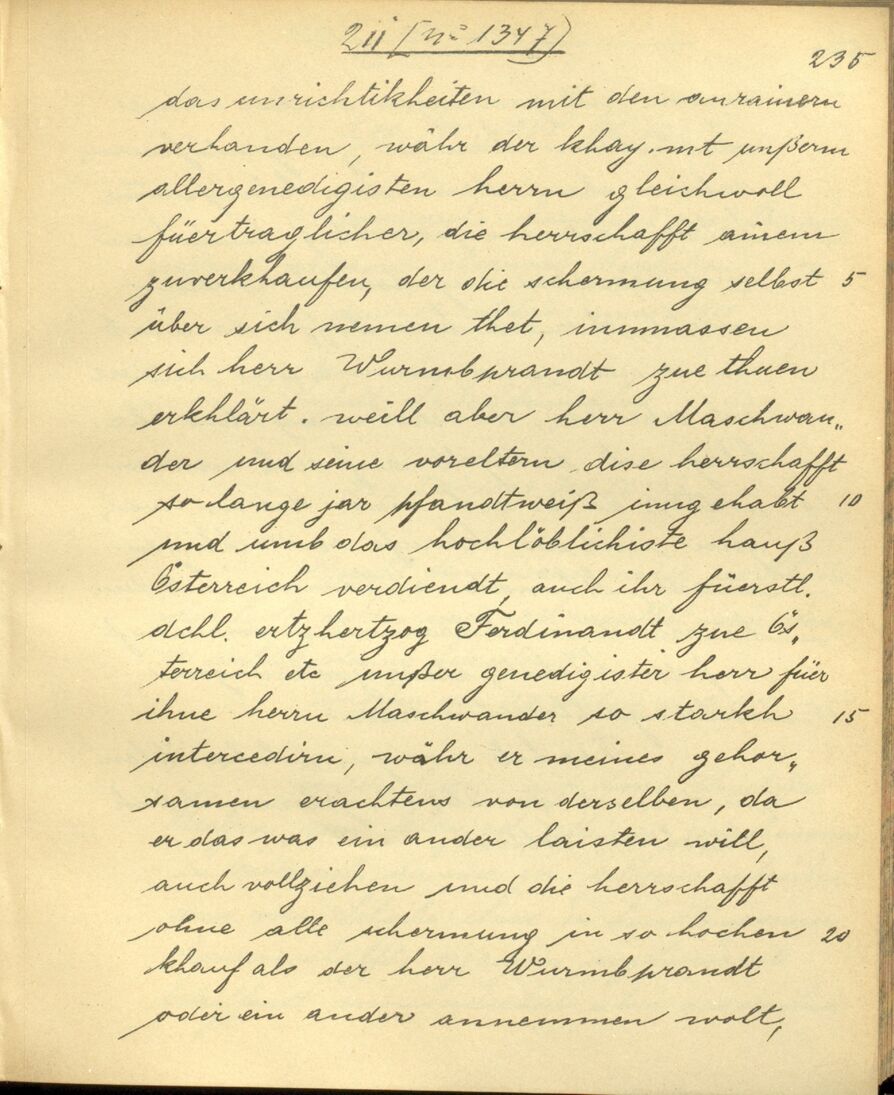 2ii [No 1347)
235
das unrichtikheiten mit den anrainern
verhanden, währ der khay. mt unßerm
allergenedigisten herrn gleichwoll
füertraglicher, die herrschafft ainem
zuverkhaufen, der die schermung selbst 5
über sich nemen thet, inmmassen
sich herr Wurmbprandt zue thuen
erkhlärt. weill aber herr Maschwan„
der und seine voreltern dise herrschafft
so lange jar pfandtweiß inngehabt 10
und umb das hochlöblichiste hauß
Österreich verdiendt, auch ihr füerstl.
dchl. ertzhertzog Ferdinandt zue Ös„
terreich etc unßer genedigister herr für
ihne herrn Maschwander so starkh 15
intercedirn, währ er meines gehor„
samen erachtens von derselben, da
er das was ein ander laisten will,
auch vollziehen und die herrschafft
ohne alle schermung in so hochen 20
khauf als der herr Wurmbprandt
oder ein ander annemmen wolt,